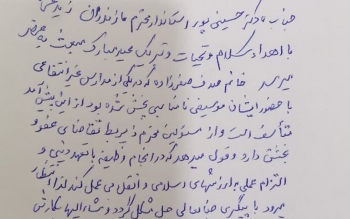 جناب دکتر حسینی پور استاندار محترم مازندران زید عزه
با اهداء سلام و تحیات و تبریک عید مبارک مبعث به عرض
میرسد خانم صدف صفرزاده که در یکی از مدارس غیر انتفاعی
با حضور ایشان موسیقی نامناسبی پخش شده بود از این پیش آمد
متأسف است و از مسئولین محترم ذیربط تقاضای عفو و
بخشش دارد و قول میدهد که در انجام وظایفم با تعهد دینی و
التزام عملی به ارزشهای اسلامی و اخلاقی عمل کند لذا انتظار
میرود با پیگیری جنابعالی حل مشکل گردد و مشارالیها بکارش